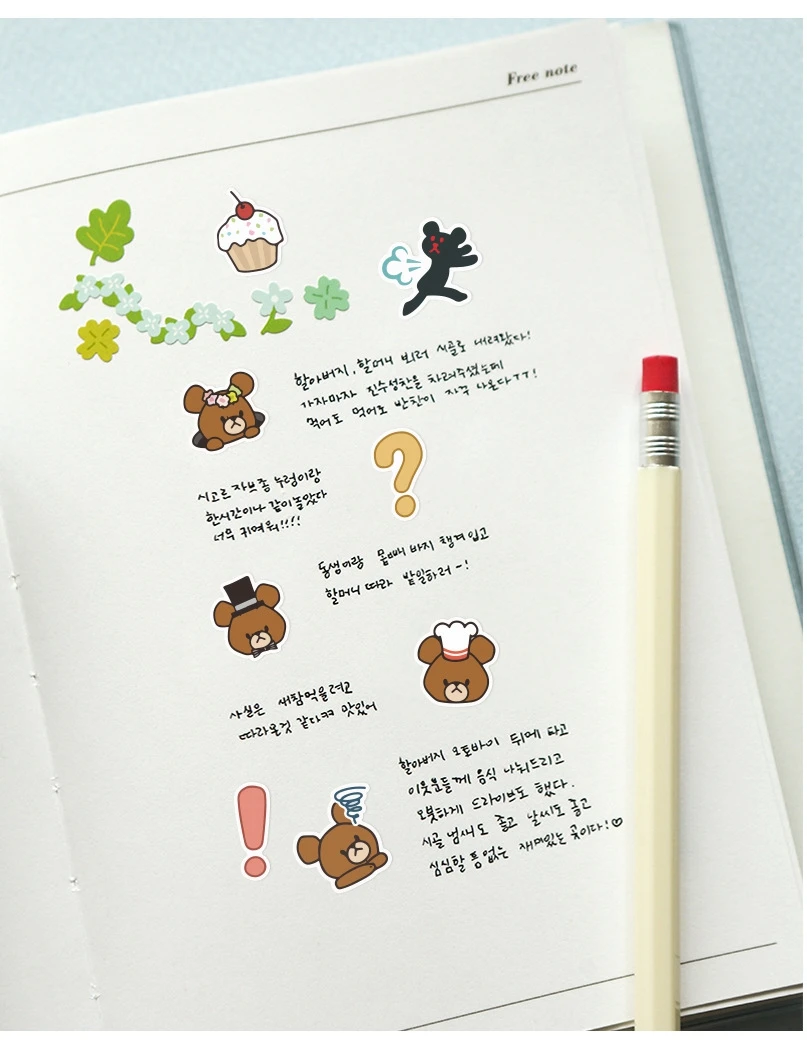 Free note
할아버지, 할머니 보러 시골로 내려왔다!
가자마자 진수성찬을 차려주셨는데
먹어도 먹어도 반찬이 자꾸 나온다ㅜㅜ!
시고르자브종 누렁이랑
한시간이나 같이놀았다
너무 귀여워!!!!
동생이랑 몸빼 바지 챙겨입고
할머니 따라 밭일하러 ~!
사실은 새참먹을려고
따라온것 같다ㅋㅋ 맛있어
할아버지 오토바이 뒤에 타고
이웃분들께 음식 나눠드리고
오붓하게 드라이브도 했다.
시골 냄새도 좋고 날씨도 좋고
심심할 틈 없는 재미있는 곳이다!♡